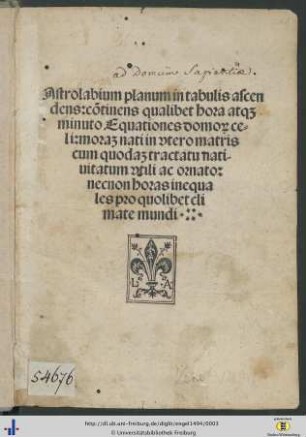 ad Domum Sapientiae.
Astrolabium planum in tabulis ascen
dens: cõtinens qualibet hora atqȝ
minuto Equationes domoꝝ ce-
li: moraȝ nati in vtero matris
cum quodaȝ tractatu nati-
uitatum vtili ac ornato:
necnon horas inequa
les pro quolibet cli
mate mundi
L A
54676
http://dl.ub.uni-freiburg.de/diglit/engel1494/0003
© Universitätsbibliothek Freiburg